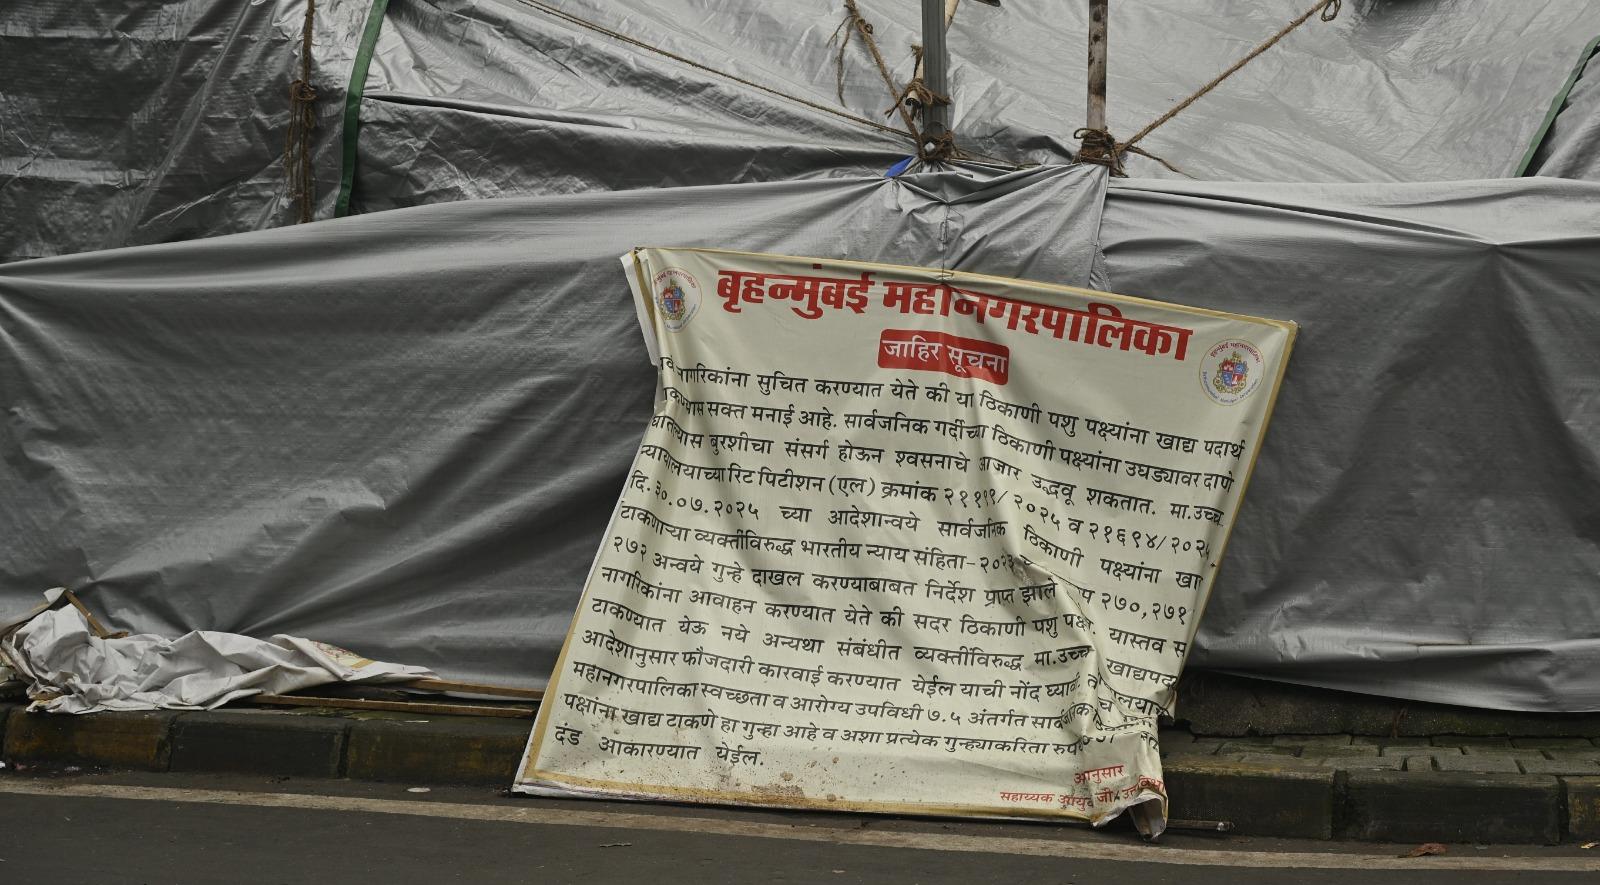 बृहन्मुंबई महानगरपालिका
जाहिर सूचना
नागरिकांना सुचित करण्यात येते की या ठिकाणी पशु पक्ष्यांना खाद्य पदार्थ
सक्त मनाई आहे. सार्वजनिक गर्दीच्या ठिकाणी पक्ष्यांना उघड्यावर दाणे
बुरशीचा संसर्ग होऊन श्वसनाचे आजार उद्भवू शकतात. मा.उच्च
न्यायालयाच्या रिट पिटीशन (एल) क्रमांक २११११/२०२५ व २१६९४/२०२५
दि.३०.०७.२०२५ च्या आदेशान्वये सार्वजनिक ठिकाणी पक्ष्यांना
टाकणाऱ्या व्यक्तींविरुद्ध भारतीय न्याय संहिता-२०२३ २७०,२७१
२७२ अन्वये गुन्हे दाखल करण्याबाबत निर्देश प्राप्त झाले यास्तव
नागरिकांना आवाहन करण्यात येते की सदर ठिकाणी पशु
टाकण्यात येऊ नये अन्यथा संबंधीत व्यक्तींविरुद्ध मा.उच्च
आदेशानुसार फौजदारी कारवाई करण्यात येईल याची नोंद
महानगरपालिका स्वच्छता व आरोग्य उपविधी ७.५ अंतर्गत
पक्षांना खाद्य टाकणे हा गुन्हा आहे व अशा प्रत्येक गुन्ह्याकरिता
दंड आकारण्यात येईल.
सहाय्यक